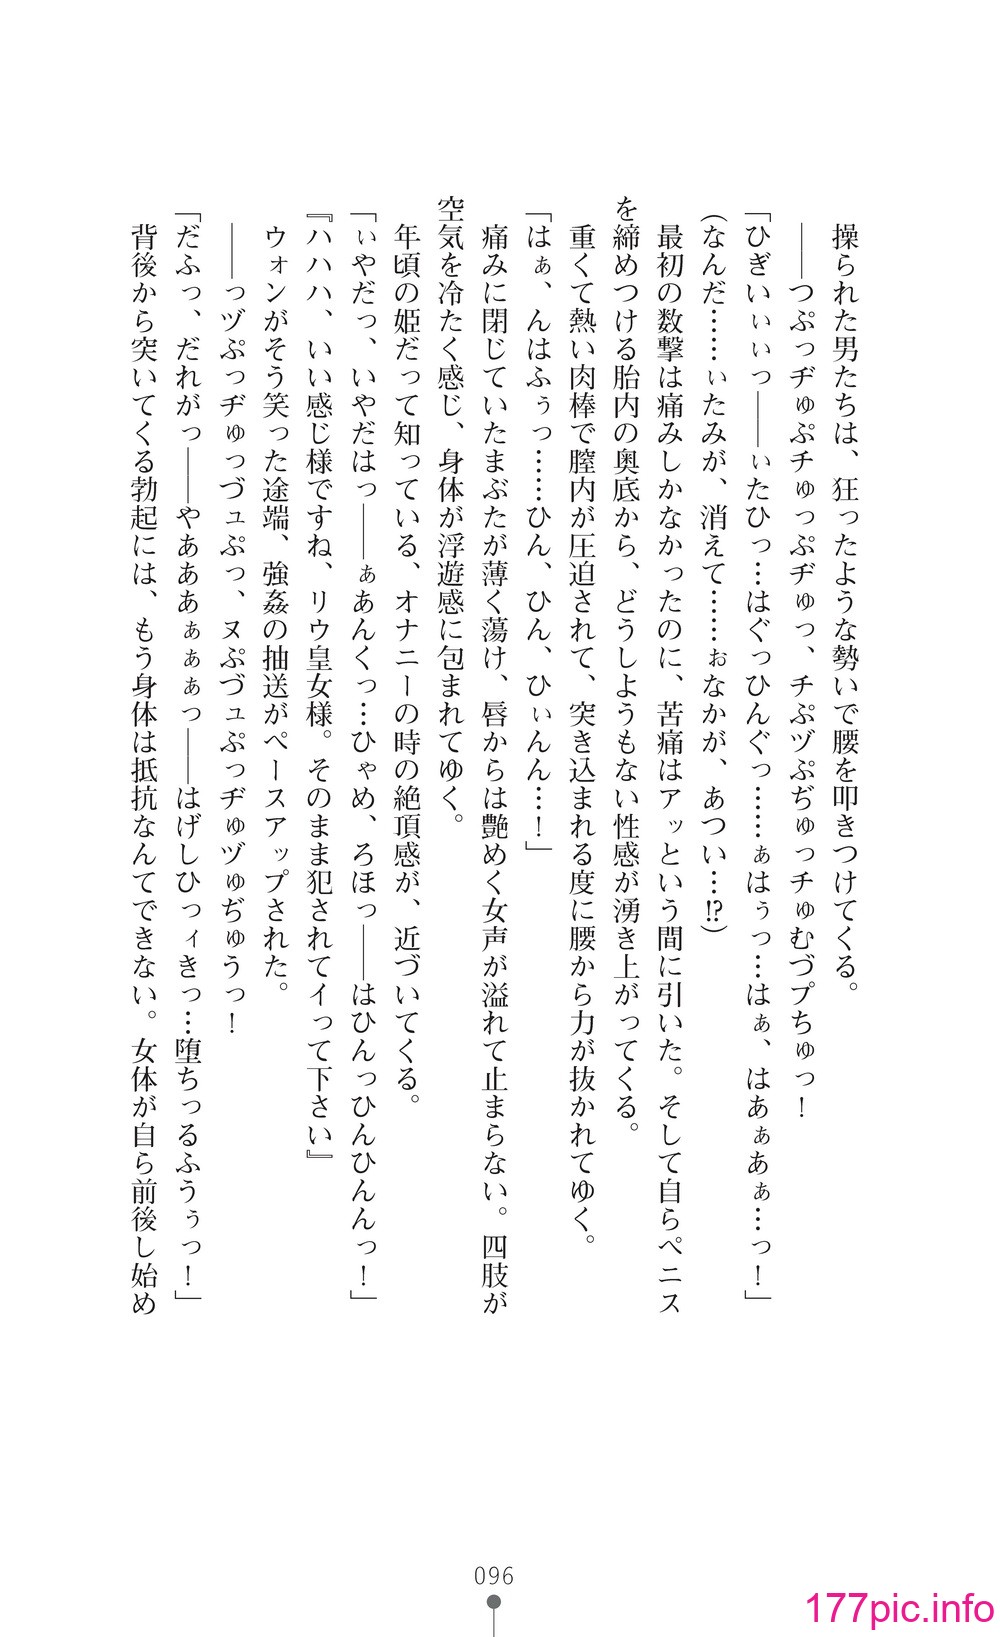 操られた男たちは、狂ったような勢いで腰を叩きつけてくる。
――つぷっヂゅぷチゅっぷヂゅっ、チぷヅぷぢゅっチゅむづプちゅっ！
「ひぎいぃぃっ――ぃたひっ…はぐっひんぐっ……ぁはぅっ…はぁ、はあぁあぁ…っ！」
(なんだ……ぃたみが、消えて……ぉなかが、あつい…!?)
最初の数撃は痛みしかなかったのに、苦痛はアッという間に引いた。そして自らペニス
を締めつける胎内の奥底から、どうしようもない性感が湧き上がってくる。
重くて熱い肉棒で膣内が圧迫されて、突き込まれる度に腰から力が抜かれてゆく。
「はぁ、んはふぅっ……ひん、ひん、ひぃんん…！」
痛みに閉じていたまぶたが薄く蕩け、唇からは艶めく女声が溢れて止まらない。四肢が
空気を冷たく感じ、身体が浮遊感に包まれてゆく。
年頃の姫だって知っている、オナニーの時の絶頂感が、近づいてくる。
「ぃやだっ、いやだはっ――ぁあんくっ…ひゃめ、ろほっ――はひんっひんひんんっ！」
『ハハハ、いい感じ様ですね、リウ皇女様。そのまま犯されてイって下さい』
ウォンがそう笑った途端、強姦の抽送がペースアップされた。
――っヅぷっヂゅっづュぷっ、ヌぷづュぷっヂゅヅゅぢゅうっ！
「だふっ、だれがっ――やあああぁぁぁっ――はげしひっィきっ…堕ちっるふうぅっ！」
背後から突いてくる勃起には、もう身体は抵抗なんてできない。女体が自ら前後し始め
096
177pic.info